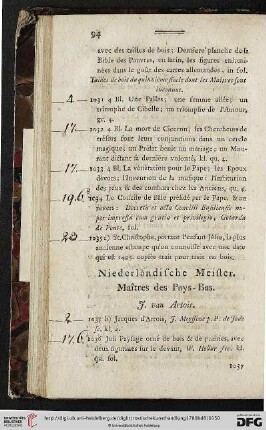 94
avec des tailles de bois: Derniere planche de la
Bible des Pauvres, en latin, les figures enluminées
dans le goût des cartes allemandes. in fol.
Tailles de bois du quinzieme siecle dont les Maitres sont
inconnus.
2 1031 4 Bl. Une Pallas; une femme ailée; un
triomphe de Cibelle; un triomphe de l'Amour,
gr. 4.
17. 1032 4 Bl. La mort de Ciceron; les Chercheurs de
trésors font leurs conjurations dans un cercle
magique; un Prélat benit un mariage; un Mourant
dictant sa derniere volonté, kl. qu. 4.
17. 1033 4 Bl. La vénération pour le Pape; les Epoux
divorcés; l'Invention de la musique; l'Institution
des jeux & des combats chez les Anciens, qu. 4.
19.6 1034 Le Concile de Bâle présidé par le Pape, &
Decreta et acta Concilii Basiliensis
impressa cum gratia et privilegio,
de Ponte, fol.
23 1035 a) St. Christophe, portant l'enfant Jésus, la plus
ancienne estampe qu'on connoisse avec une date
qui est 1423. copiée trait pour trait en bois.
Niederländische Meister.
Maîtres des Pays-Bas.
J. van Artois.
2 1035 b) Jacques d'Artois, J. Meyssens p. P. de Jode
sc. kl. 4.
17.6 1036 Joli Paysage orné de bois & de prairies, avec
deux figures sur le devant, W. Hollar fec. kl.
qu. fol.
1037
UNIVERSITÄTS-
BIBLIOTHEK
HEIDELBERG
DFG